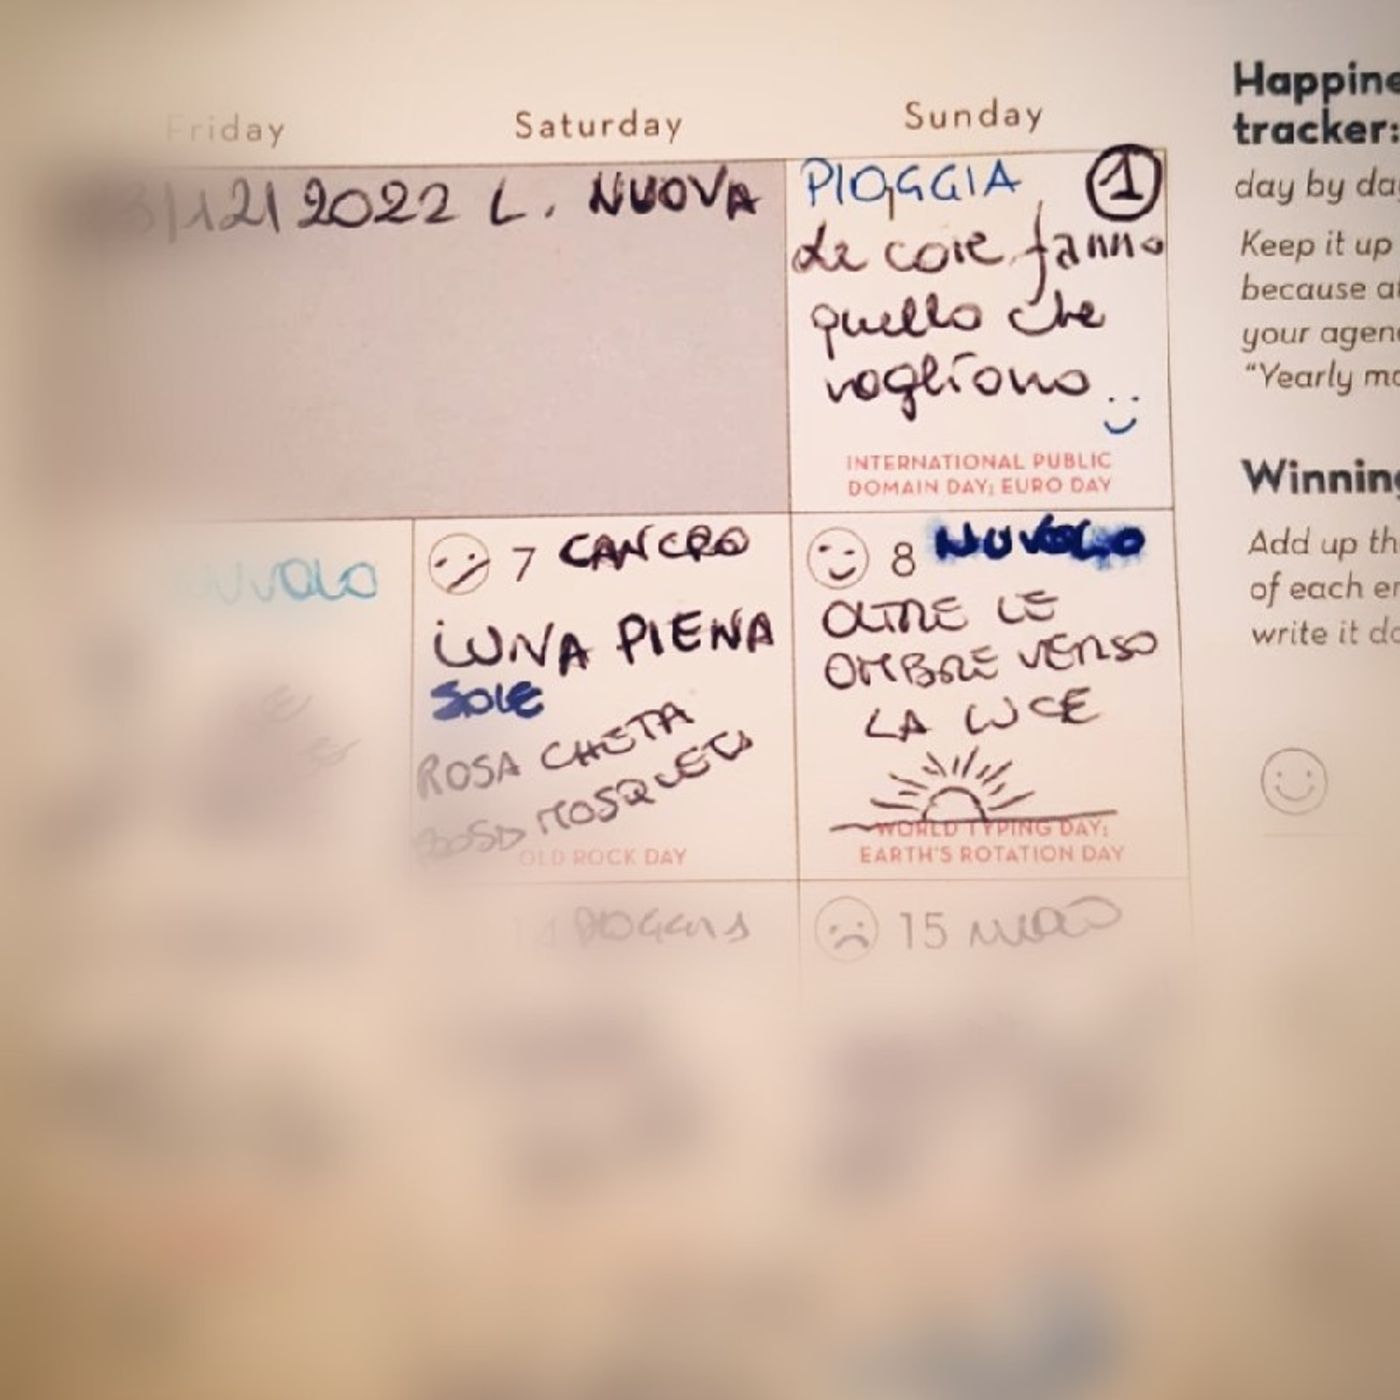 Friday Saturday Sunday
3/12/2022 L. NUOVA
PIOGGIA 1
Le cose fanno
quello che
vogliono
INTERNATIONAL PUBLIC
DOMAIN DAY; EURO DAY
NUVOLO
7 CANCRO
LUNA PIENA
SOLE
ROSA CHETA
ROSA MOSQUETA
OLD ROCK DAY
8 NUVOLO
OLTRE LE
OMBRE VERSO
LA LUCE
WORLD TYPING DAY;
EARTH'S ROTATION DAY
14 PIOGGIA
15
Happine
tracker:
day by da
Keep it up
because at
your agen
"Yearly mo
Winning
Add up th
of each e
write it do